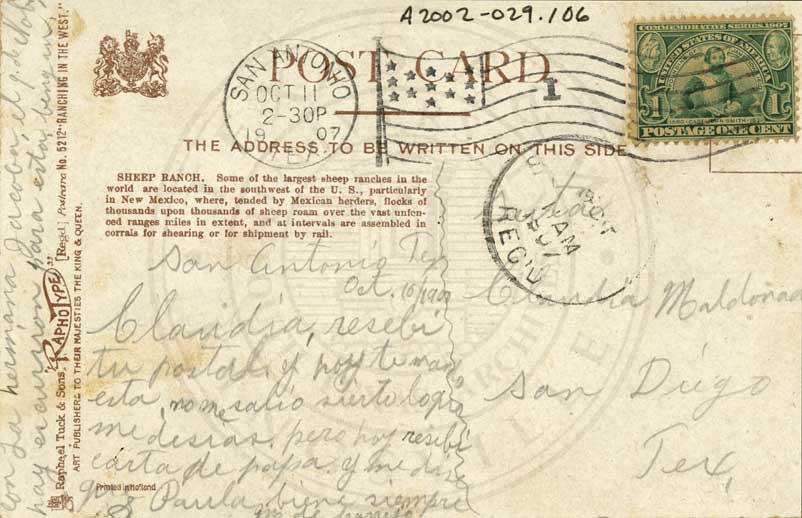 A2002-029.106
POST CARD
SAN ANTONIO
OCT 11
2-30P
1907
TEX.
1
COMMEMORATIVE SERIES 1907
UNITED STATES OF AMERICA
1 1
POSTAGE ONE CENT
THE ADDRESS TO BE WRITTEN ON THIS SIDE
SHEEP RANCH. Some of the largest sheep ranches in the
world are located in the southwest of the U. S., particularly
in New Mexico, where, tended by Mexican herders, flocks of
thousands upon thousands of sheep roam over the vast unfen-
ced ranges miles in extent, and at intervals are assembled in
corrals for shearing or for shipment by rail.
AM
REC'D
San Antonio Tex
Oct. 10/1907
Claudia, resebi
tu postal y hoy te man
esta, no me salio sierto lo q
me desias, pero hoy resebi
carta de papa y me dise
Paula biene siempre
con la hermana Jacoba, el
hay
para
Claudia Maldonado
San Diego
Tex,
Raphael Tuck & Sons' "RAPHOTYPE" [Regd.] Postcard No. 5212 "RANCHING IN THE WEST."
ART PUBLISHERS TO THEIR MAJESTIES THE KING & QUEEN.
Printed in Holland